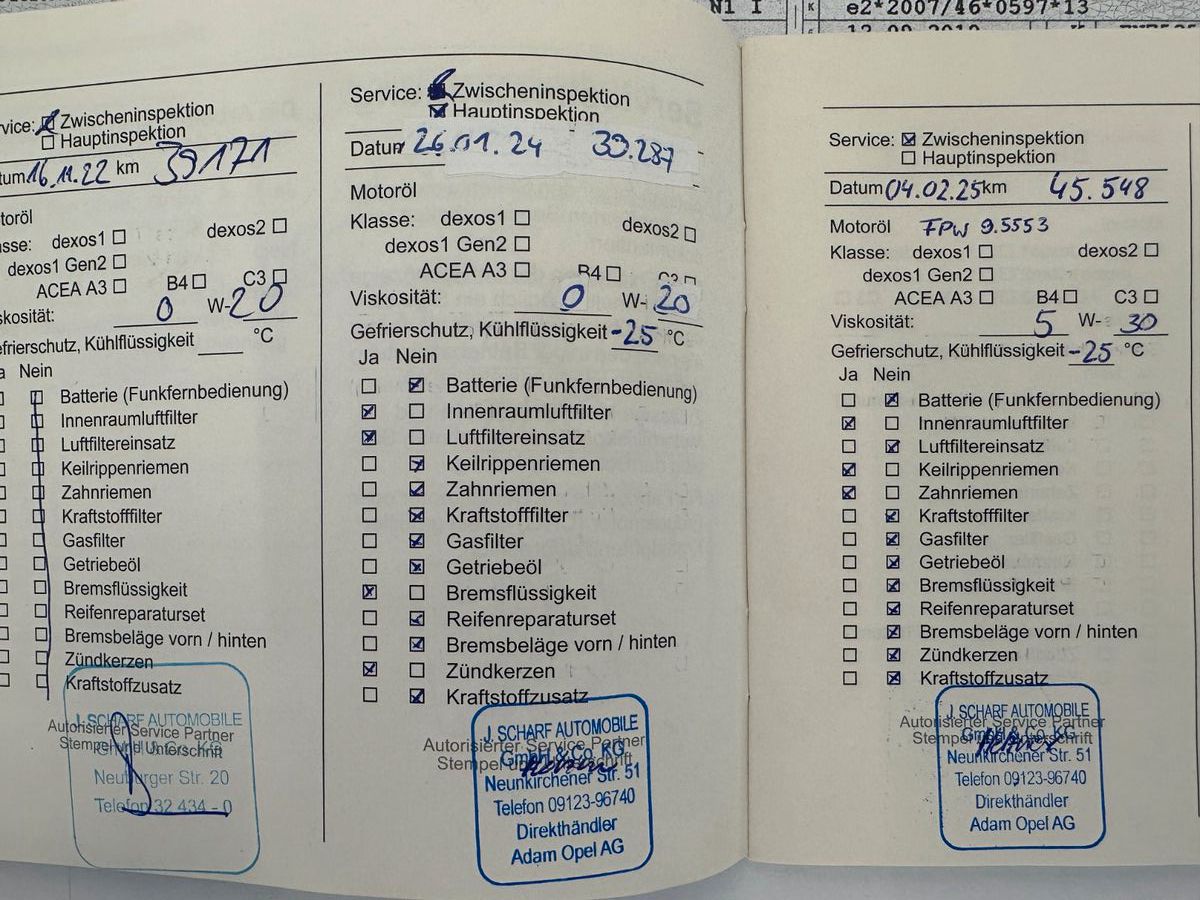 N1 I K e2*2007/46*0597*13
Zwischeninspektion
Hauptinspektion
16.11.22 km 39171
dexos1 dexos2
dexos1 Gen2
ACEA A3 B4 C3
0 W-20
Kühlflüssigkeit °C
Nein
Batterie (Funkfernbedienung)
Innenraumluftfilter
Luftfiltereinsatz
Keilrippenriemen
Zahnriemen
Kraftstofffilter
Gasfilter
Getriebeöl
Bremsflüssigkeit
Reifenreparaturset
Bremsbeläge vorn / hinten
Zündkerzen
Kraftstoffzusatz
Autorisierter Service Partner
Stempel und Unterschrift
J. SCHARF AUTOMOBILE
GmbH & Co. KG
Neuburger Str. 20
Telefon 32 434 - 0
Service: Zwischeninspektion
Hauptinspektion
Datum 26.01.24 39.287
Motoröl
Klasse: dexos1 dexos2
dexos1 Gen2
ACEA A3 B4 C3
Viskosität: 0 W- 20
Gefrierschutz, Kühlflüssigkeit -25 °C
Ja Nein
Batterie (Funkfernbedienung)
Innenraumluftfilter
Luftfiltereinsatz
Keilrippenriemen
Zahnriemen
Kraftstofffilter
Gasfilter
Getriebeöl
Bremsflüssigkeit
Reifenreparaturset
Bremsbeläge vorn / hinten
Zündkerzen
Kraftstoffzusatz
Autorisierter Service Partner
Stempel und Unterschrift
J. SCHARF AUTOMOBILE
GmbH & Co. KG
Neunkirchener Str. 51
Telefon 09123-96740
Direkthändler
Adam Opel AG
Service: Zwischeninspektion
Hauptinspektion
Datum 04.02.25 km 45.548
Motoröl FPW 9.5553
Klasse: dexos1 dexos2
dexos1 Gen2
ACEA A3 B4 C3
Viskosität: 5 W- 30
Gefrierschutz, Kühlflüssigkeit -25 °C
Ja Nein
Batterie (Funkfernbedienung)
Innenraumluftfilter
Luftfiltereinsatz
Keilrippenriemen
Zahnriemen
Kraftstofffilter
Gasfilter
Getriebeöl
Bremsflüssigkeit
Reifenreparaturset
Bremsbeläge vorn / hinten
Zündkerzen
Kraftstoffzusatz
Autorisierter Service Partner
Stempel und Unterschrift
J. SCHARF AUTOMOBILE
GmbH & Co. KG
Neunkirchener Str. 51
Telefon 09123-96740
Direkthändler
Adam Opel AG